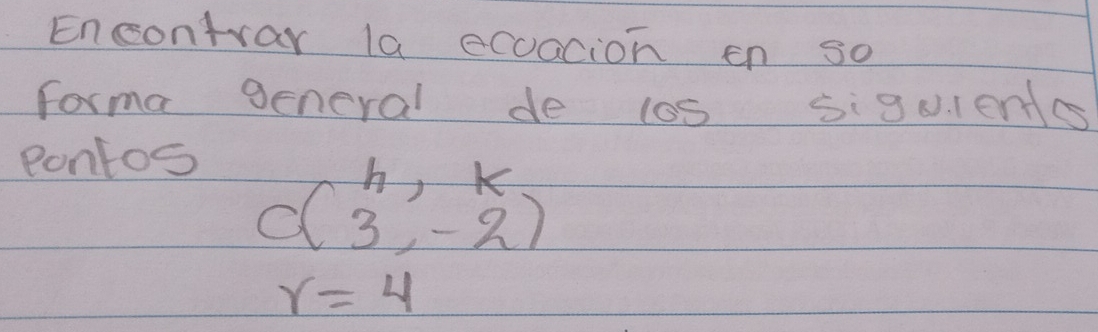 Encontrar la ecuación en so
forma general de los siguientes
pontos
h, k
C(3, -2)
r = 4